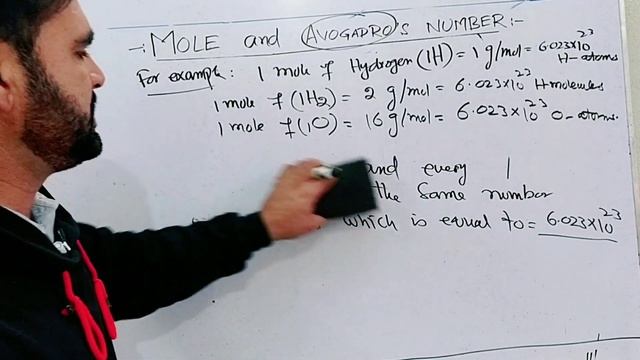 -: MOLE and AVOGADRO'S NUMBER:-
For example: 1 mole of Hydrogen (1H) = 1 g/mol = 6.023x10^23 H-atoms
1 mole of (1H2) = 2 g/mol = 6.023x10^23 H molecules
1 mole of (1O) = 16 g/mol = 6.023x10^23 O-atoms.
and every 1
the same number
which is equal to = 6.023x10^23